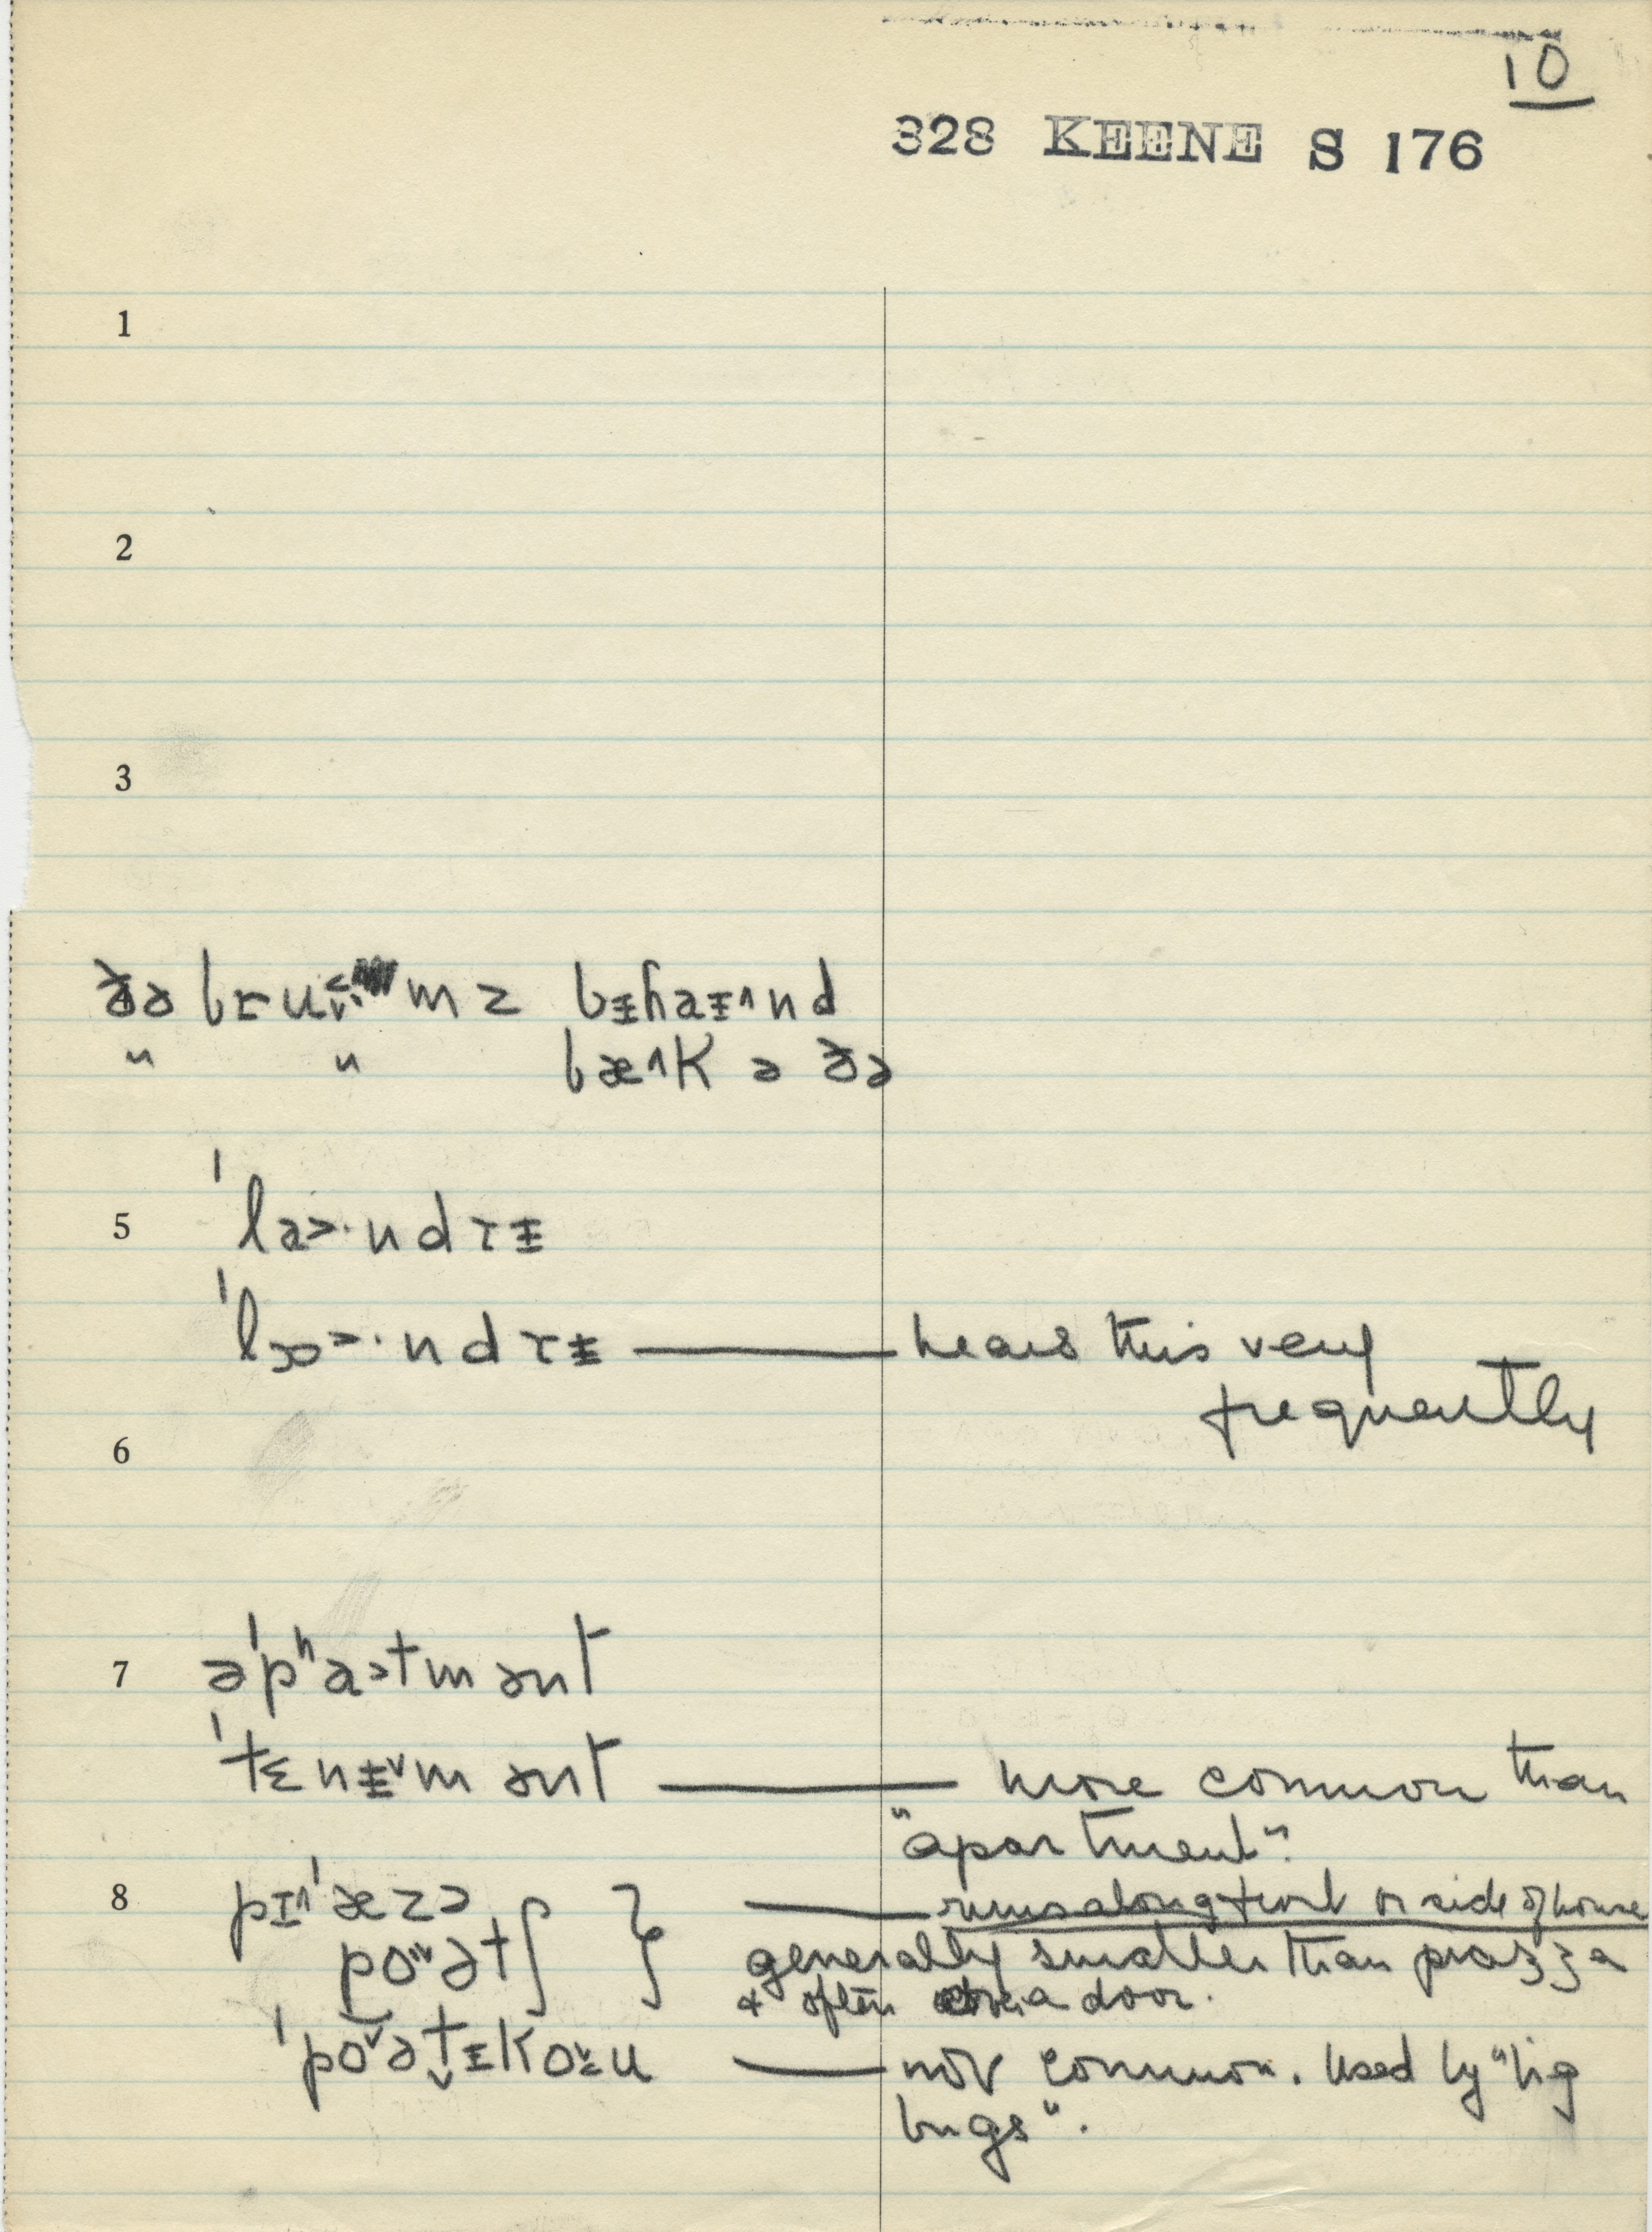 10
328 KEENE S 176
1
2
3
ðə bɾu mz bɨhaɨ^nd
" " bæ^k ə ðə
5 'la>·ndrɨ
'lɒ>·ndrɨ — hears this very
frequently
6
7 ə'pʰa>tmənt
'tɛnɨᵛmənt — more common than
"apartment".
8 pɪ^'æzə — runs along front or side of house
poət∫ } generally smaller than piazza
& often a door.
'poᵛətɨko u — not common. Used by "big
bugs".